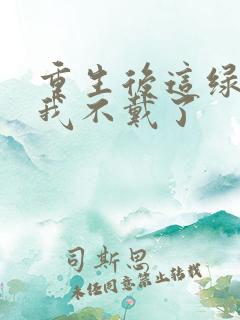 重生後這绿
我不戴了
司斯思
未经同意禁止转载